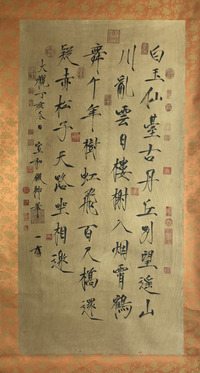 白玉仙臺古丹丘別望遥山
川亂雲日樓榭入烟霄鶴
舞千年樹虹飛百尺橋還
疑赤松子天路坐相邀
大觀丁亥春日 宣和殿御筆